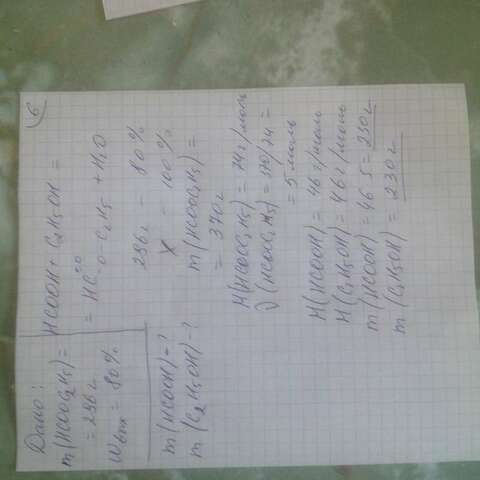 6
Дано:
m(HCOOC2H5) =
= 296 г
Wвых = 80%
m(HCOOH) - ?
m(C2H5OH) - ?
HCOOH + C2H5OH =
= HC=O-O-C2H5 + H2O
296 г - 80%
X - 100%
m(HCOOC2H5) =
= 370 г
M(HCOOC2H5) = 74 г/моль
ν(HCOOC2H5) = 370/74 =
= 5 моль
M(HCOOH) = 46 г/моль
M(C2H5OH) = 46 г/моль
m(HCOOH) = 46·5 = 230 г
m(C2H5OH) = 230 г